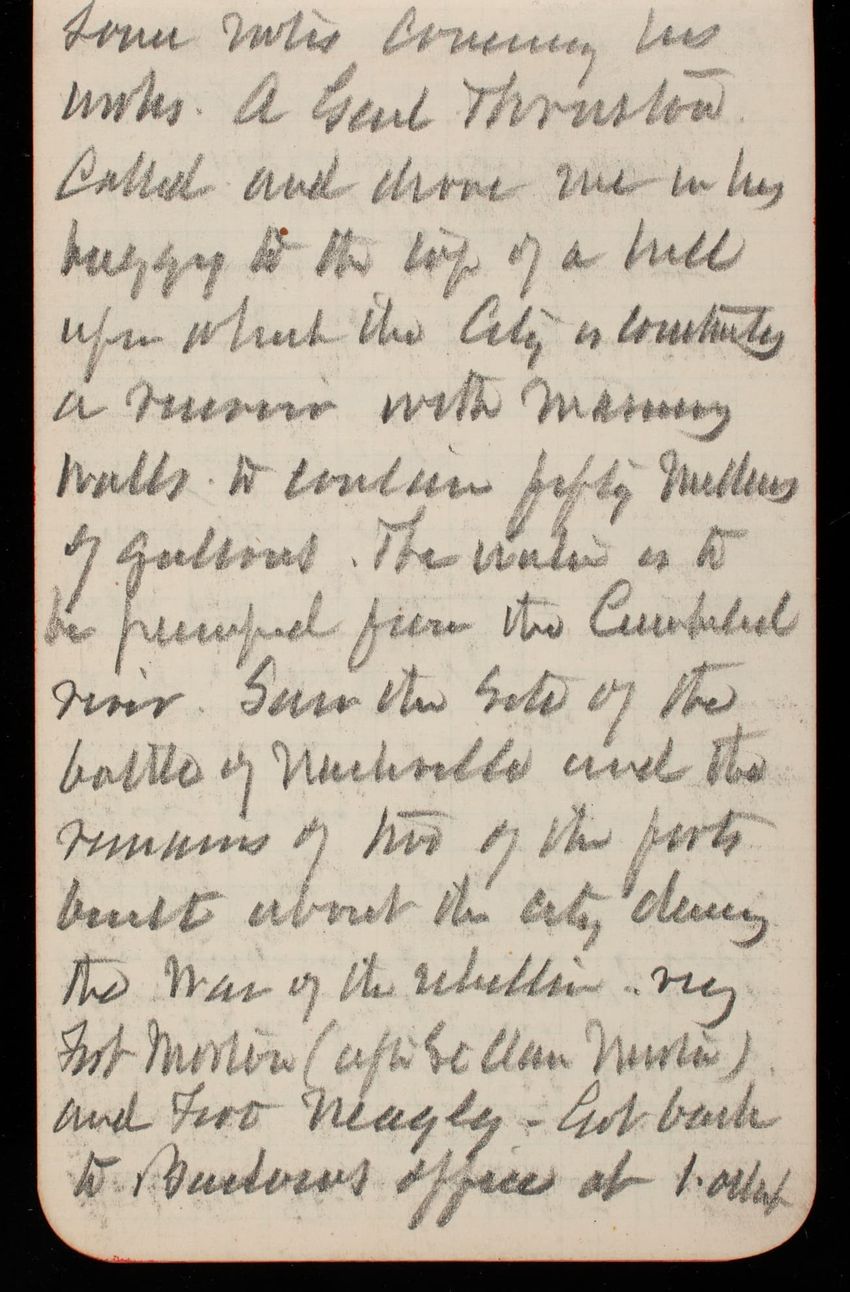 Some notes covering his
works. A Genl Thruston
Called and drove me in his
buggy to the top of a hill
upon which the City is constructing
a reservoir with masonry
walls to contain fifty Millions
of gallons. The water is to
be pumped from the Cumberland
river. Saw the Site of the
battle of Nashville and the
remains of two of the forts
built about the city during
the War of the rebellion.
Fort Morton (after St Clair Morton)
and Fort Neagly - Got back
to Barlows office at 1. oclock